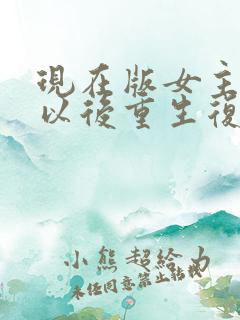 現在版女主
以後重生復
小熊超給力
未經同意禁止轉載